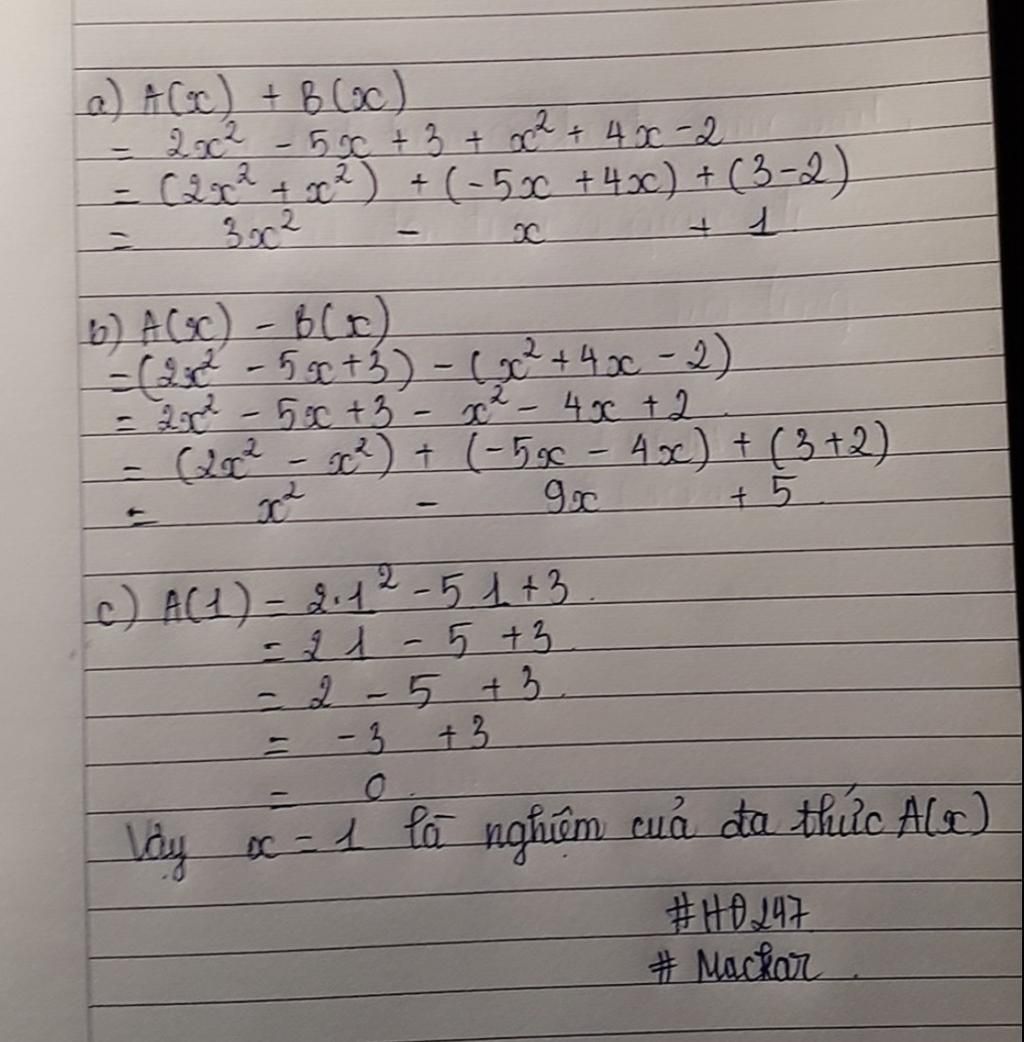 a) A(x) + B(x)
= 2x² - 5x + 3 + x² + 4x - 2
= (2x² + x²) + (-5x + 4x) + (3-2)
= 3x² - x + 1
b) A(x) - B(x)
=(2x² - 5x+3) - (x² + 4x - 2)
= 2x² - 5x + 3 - x² - 4x + 2
= (2x² - x²) + (-5x - 4x) + (3+2)
= x² - 9x + 5
c) A(1) = 2.1² - 5 1 + 3
= 2 1 - 5 + 3
= 2 - 5 + 3
= -3 + 3
= 0
Vậy x = 1 là nghiệm của đa thức A(x)
#HĐ247